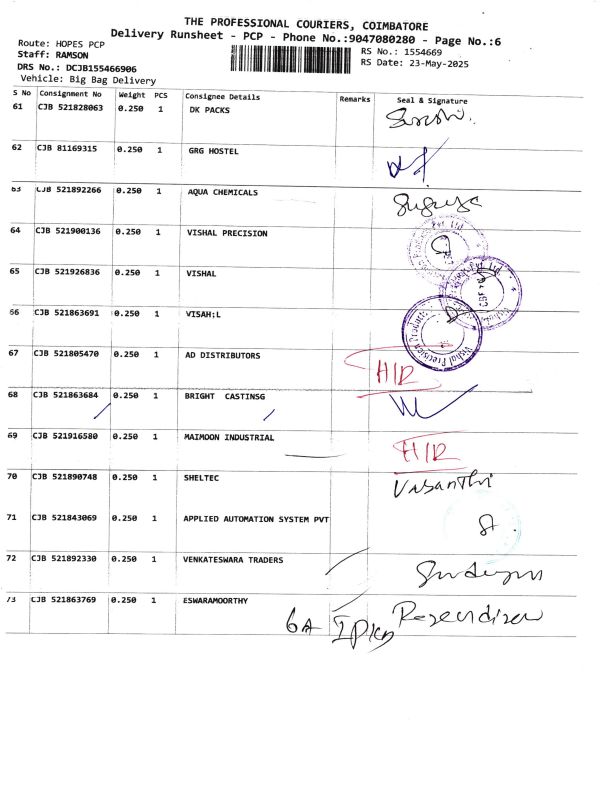 THE PROFESSIONAL COURIERS, COIMBATORE
Delivery Runsheet - PCP - Phone No.:9047080280 - Page No.:6
Route: HOPES PCP
Staff: RAMSON
DRS No.: DCJB155466906
Vehicle: Big Bag Delivery
RS No.: 1554669
RS Date: 23-May-2025
S No Consignment No Weight PCS Consignee Details Remarks Seal & Signature
61 CJB 521828063 0.250 1 DK PACKS
62 CJB 81169315 0.250 1 GRG HOSTEL
63 CJB 521892266 0.250 1 AQUA CHEMICALS
64 CJB 521900136 0.250 1 VISHAL PRECISION
65 CJB 521926836 0.250 1 VISHAL
66 CJB 521863691 0.250 1 VISAH;L
67 CJB 521805470 0.250 1 AD DISTRIBUTORS H/R
68 CJB 521863684 0.250 1 BRIGHT CASTINSG
69 CJB 521916580 0.250 1 MAIMOON INDUSTRIAL H/R
70 CJB 521890748 0.250 1 SHELTEC Vasanthi
71 CJB 521843069 0.250 1 APPLIED AUTOMATION SYSTEM PVT
72 CJB 521892330 0.250 1 VENKATESWARA TRADERS
73 CJB 521863769 0.250 1 ESWARAMOORTHY
Vishal Precision Products
Pvt Ltd